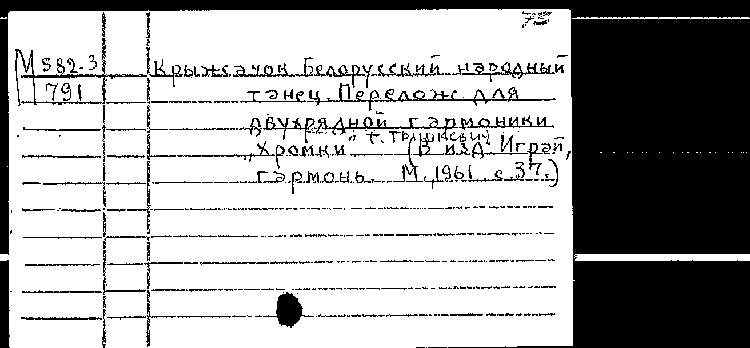 75
М 582-3
791
Крыжачок Белорусский народный
танец. Перелож для
двухрядной гармоники
„Хромки" (В изд. Играй,
гармонь. М., 1961 с. 37.)